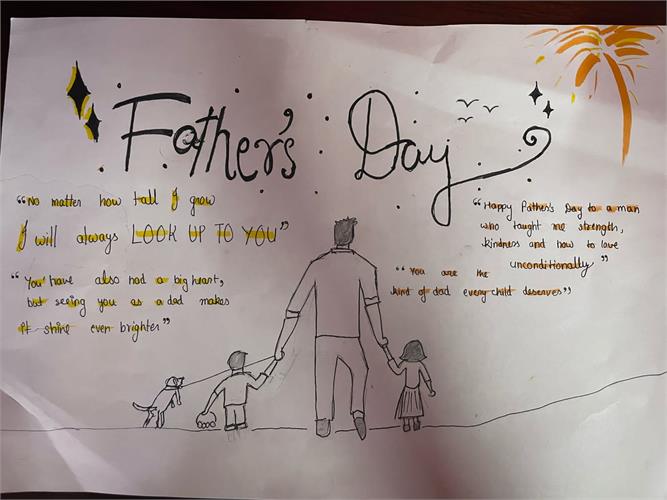 Father's Day
"No matter how tall I grow
I will always LOOK UP TO YOU"
"You have also had a big heart,
but seeing you as a dad makes
it shine even brighter"
"Happy Father's Day to a man
who taught me strength,
kindness and how to love
unconditionally"
"You are the
kind of dad every child deserves"